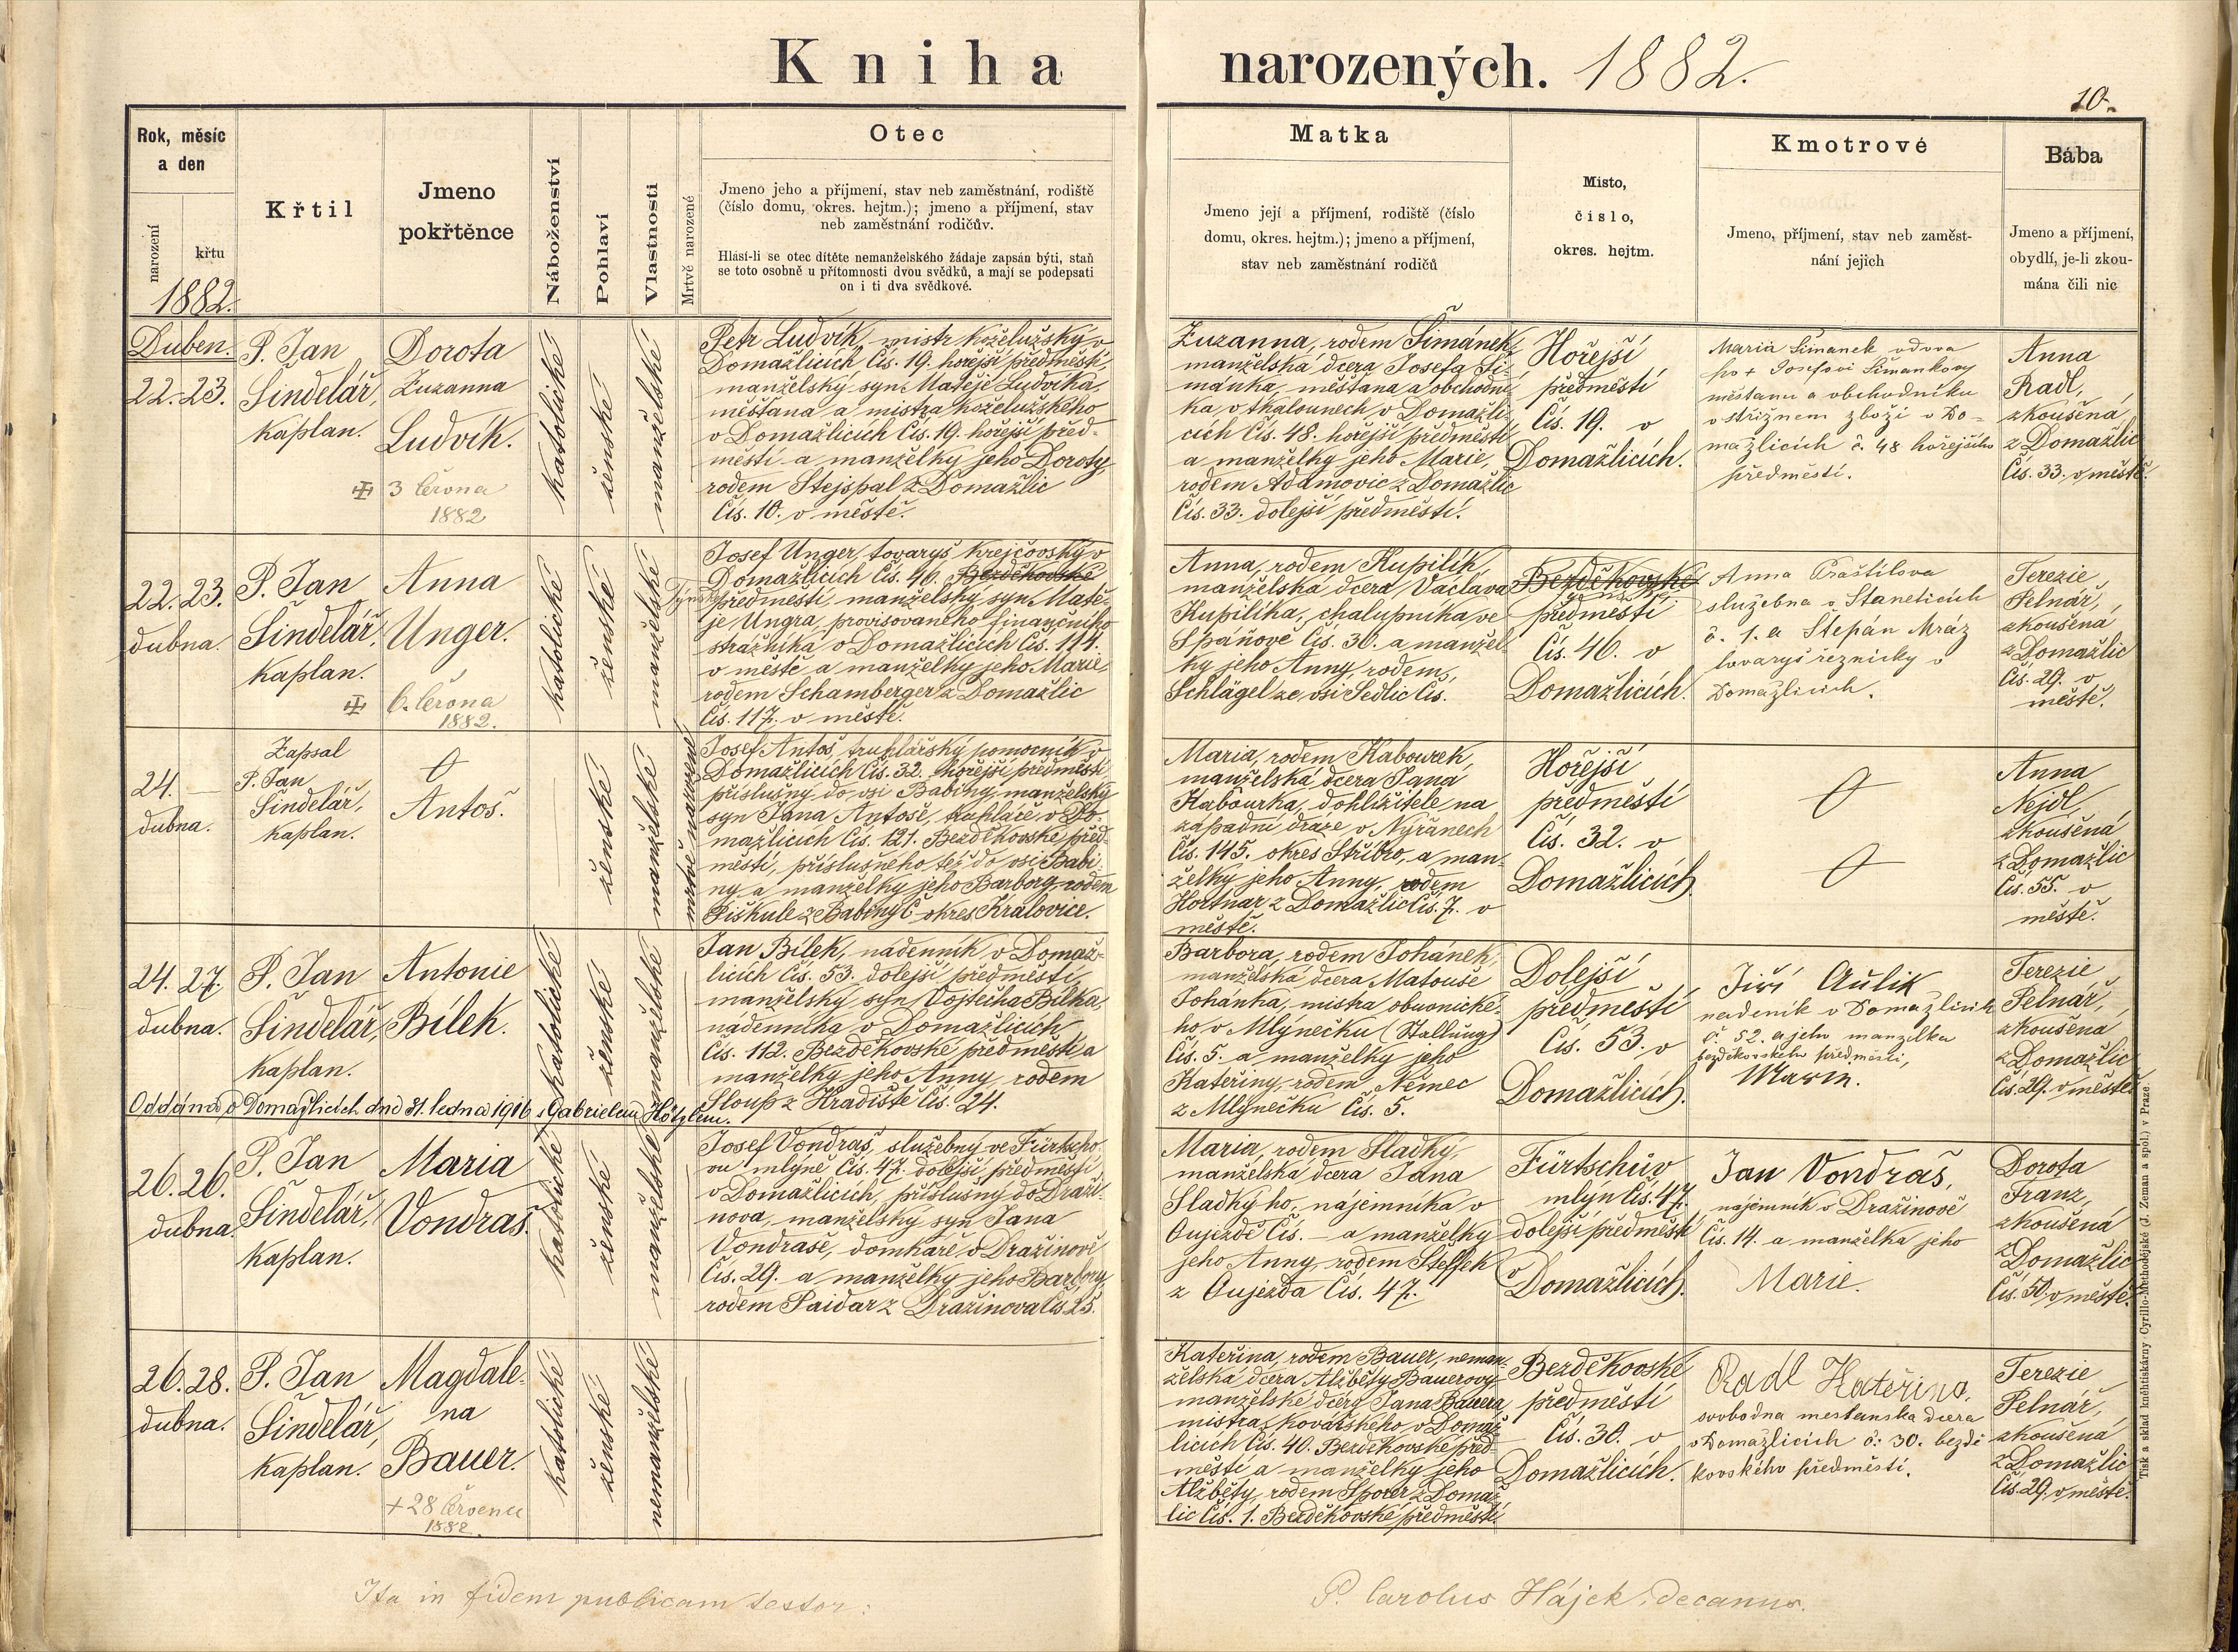 Kniha narozených. 1882.
10.
Rok, měsíc
a den
narození
křtu
1882.
Křtil
Jmeno
pokřtěnce
Náboženství
Pohlaví
Vlastnosti
Mrtvě narozené
Otec
Jmeno jeho a příjmení, stav neb zaměstnání, rodiště
(číslo domu, okres. hejtm.); jmeno a příjmení, stav
neb zaměstnání rodičův.
Hlásí-li se otec dítěte nemanželského žádaje zapsán býti, staň
se toto osobně u přítomnosti dvou svědků, a mají se podepsati
on i ti dva svědkové.
Matka
Jmeno její a příjmení, rodiště (číslo
domu, okres. hejtm.); jmeno a příjmení,
stav neb zaměstnání rodičů
Místo,
číslo,
okres. hejtm.
Kmotrové
Jmeno, příjmení, stav neb zaměst-
nání jejich
Bába
Jmeno a příjmení,
obydlí, je-li zkou-
mána čili nic
Duben.
22. 23.
P. Jan
Šindelář,
kaplan.
Dorota
Zuzanna
Ludvík.
3 června
1882
katolické
ženské
manželské
Petr Ludvík, mistr koželužský v
Domažlicích Čís. 19. hořejší předměstí,
manželský syn Matěje Ludvíka,
měšťana a mistra koželužského
v Domažlicích Čís. 19. hořejší před-
městí a manželky jeho Doroty
rodem Stejspal z Domažlic
Čís. 10. v městě.
Zuzanna, rodem Šimánek,
manželská dcera Josefa Ši-
mánka, měšťana a obchodní-
ka v tkalounech v Domažli-
cích Čís. 48. hořejší předměstí
a manželky jeho Marie,
rodem Adamovic z Domažlic
Čís. 33. dolejší předměstí.
Hořejší
předměstí
Čís. 19. v
Domažlicích.
Maria Šimanek vdova
po + Josefovi Šimankovy
měštanu a obchodníku
v střižnem zboží v Do-
mažlicích č. 48 hořejšího
předměstí.
Anna
Radl,
zkoušená
z Domažlic
Čís. 33. v městě.
22. 23.
dubna.
P. Jan
Šindelář,
kaplan.
Anna
Unger.
6. června
1882.
katolické
ženské
manželské
Josef Unger, tovaryš krejčovský v
Domažlicích Čís. 46. Bezděkovské
předměstí manželský syn Matě-
je Ungra, provisovaného finančního
strážníka v Domažlicích Čís. 114.
v městě a manželky jeho Marie
rodem Schamberger z Domažlic
Čís. 117. v městě.
Anna, rodem Kupilík,
manželská dcera Václava
Kupilíka, chalupníka ve
Spáňově Čís. 30. a manžel-
ky jeho Anny, rodem
Schlägel ze vsi Sedlic Čís.
Bezděkovské
předměstí
Čís. 46. v
Domažlicích.
Anna Praštilova
služebna v Staneticích
č. 1. a Štepán Mráz
tovaryš řeznický v
Domažlicích.
Terezie
Pelnář,
zkoušená
z Domažlic
Čís. 29. v
městě.
24. —
dubna.
Zapsal
P. Jan
Šindelář,
kaplan.
Antoš.
ženské
manželské
mrtvě narozené
Josef Antoš, truhlářský pomocník v
Domažlicích Čís. 32. hořejší předměstí
příslušný do vsi Babiny, manželský
syn Jana Antoše, truhláře v Do-
mažlicích Čís. 121. Bezděkovské před-
městí, příslušného též do vsi Babi-
ny a manželky jeho Barbory rodem
Piškule z Babiny Č okres Kralovice.
Maria, rodem Kabourek,
manželská dcera Jana
Kabourka, dohlížitele na
západní dráze v Nýřanech
Čís. 145. okres Stříbro, a man-
želky jeho Anny, rodem
Hortnar z Domažlic Čís. 7. v
městě.
Hořejší
předměstí
Čís. 32. v
Domažlicích.
Anna
Nejdl,
zkoušená
z Domažlic
Čís. 55. v
městě.
24. 27.
dubna.
P. Jan
Šindelář,
kaplan.
Antonie
Bílek.
katolické
ženské
manželské
Jan Bílek, nádenník v Domaž-
licích Čís. 53. dolejší předměstí,
manželský syn Vojtěcha Bílka,
nádenníka v Domažlicích
Čís. 112. Bezděkovské předměstí a
manželky jeho Anny, rodem
Sloup z Hradiště Čís. 24.
Barbora, rodem Johánek,
manželská dcera Matouše
Johanka, mistra obuvnické-
ho v Mlýnečku (Stallung)
Čís. 5. a manželky jeho
Kateřiny, rodem Němec
z Mlýnečku Čís. 5.
Dolejší
předměstí
Čís. 53. v
Domažlicích.
Jiří Aulik
nadeník v Domažlicích
č. 52. a jeho manzelka
bezděkovského předměstí,
Marie.
Terezie
Pelnář,
zkoušená
z Domažlic
Čís. 29. v městě.
Oddána v Domažlicích dne 31. ledna 1916 s Gabrielem Hötzlem.
26. 26.
dubna.
P. Jan
Šindelář,
kaplan.
Maria
Vondraš.
katolické
ženské
manželské
Josef Vondraš, služebný ve Fürtscho-
vu mlýně Čís. 47. dolejší předměstí
v Domažlicích, příslušný do Draži-
nova, manželský syn Jana
Vondraše, domkáře v Dražinově
Čís. 29. a manželky jeho Barbory,
rodem Paidar z Dražinova Čís 25.
Maria, rodem Sladký,
manželská dcera Jana
Sladkýho, nájemníka v
Oujezdě Čís. — a manželky
jeho Anny, rodem Steffek
z Oujezda Čís. 47.
Fürtschův
mlýn Čís. 47.
dolejší předměstí
v Domažlicích.
Jan Vondraš,
nájemník v Dražinově
Čís. 14. a manželka jeho
Marie.
Dorota
Franz,
zkoušená
z Domažlic
Čís. 50. v městě.
26. 28.
dubna.
P. Jan
Šindelář,
kaplan.
Magdale-
na
Bauer.
+ 28 červenu
1882.
katolické
ženské
nemanželské
Kateřina, rodem Bauer, neman-
želská dcera Alžběty Bauerovy
manželské dcery Jana Bauera,
mistra kovářského v Domaž-
licích Čís. 40. Bezděkovské před-
městí a manželky jeho
Alžběty, rodem Sporer z Domaž-
lic Čís. 1. Bezděkovské předměstí.
Bezděkovské
předměstí
Čís. 30. v
Domažlicích.
Radl Kateřina,
svobodna mestanska dcera
v Domažlicích č. 30. bezdě
kovského předměstí.
Terezie
Pelnář,
zkoušená
z Domažlic
Čís. 29. v městě.
Ita in fidem publicam testor:
P. Carolus Hájek, decanus.
Tisk a sklad knihtiskárny Cyrillo-Methodějské (J. Zeman a spol.) v Praze.